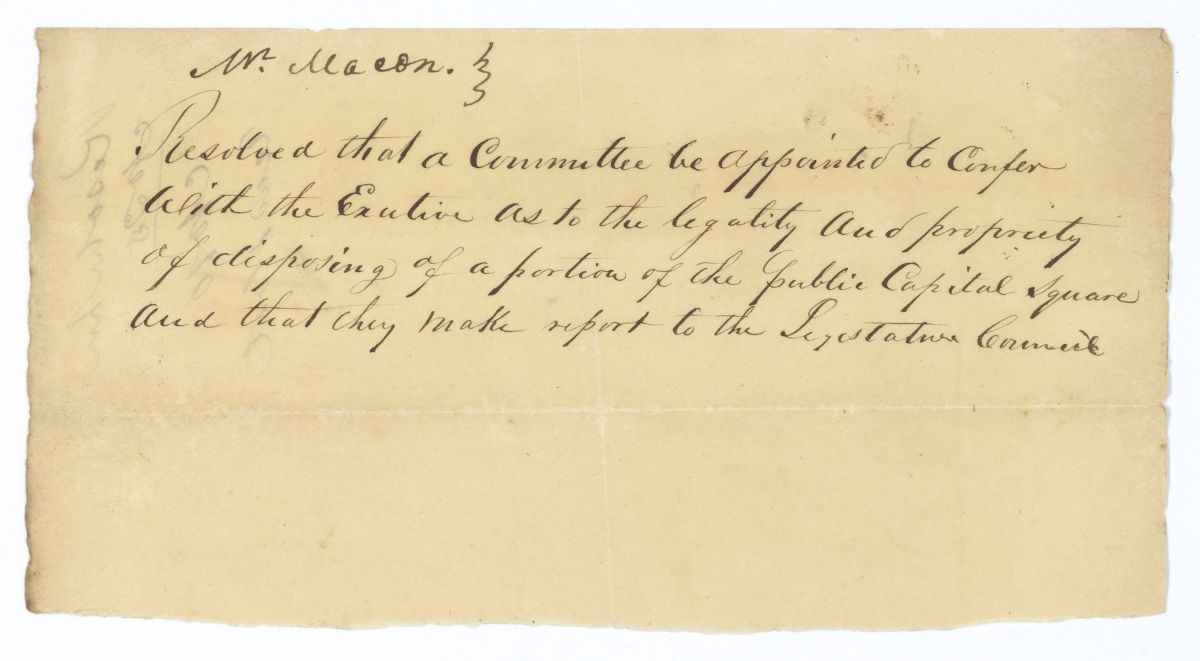 Mr. Macon.
Resolved that a Committee be appointed to Confer
With the Exutive as to the legality and propriety
Of disposing of a portion of the public Capital Square
and that they make report to the Legislature Council